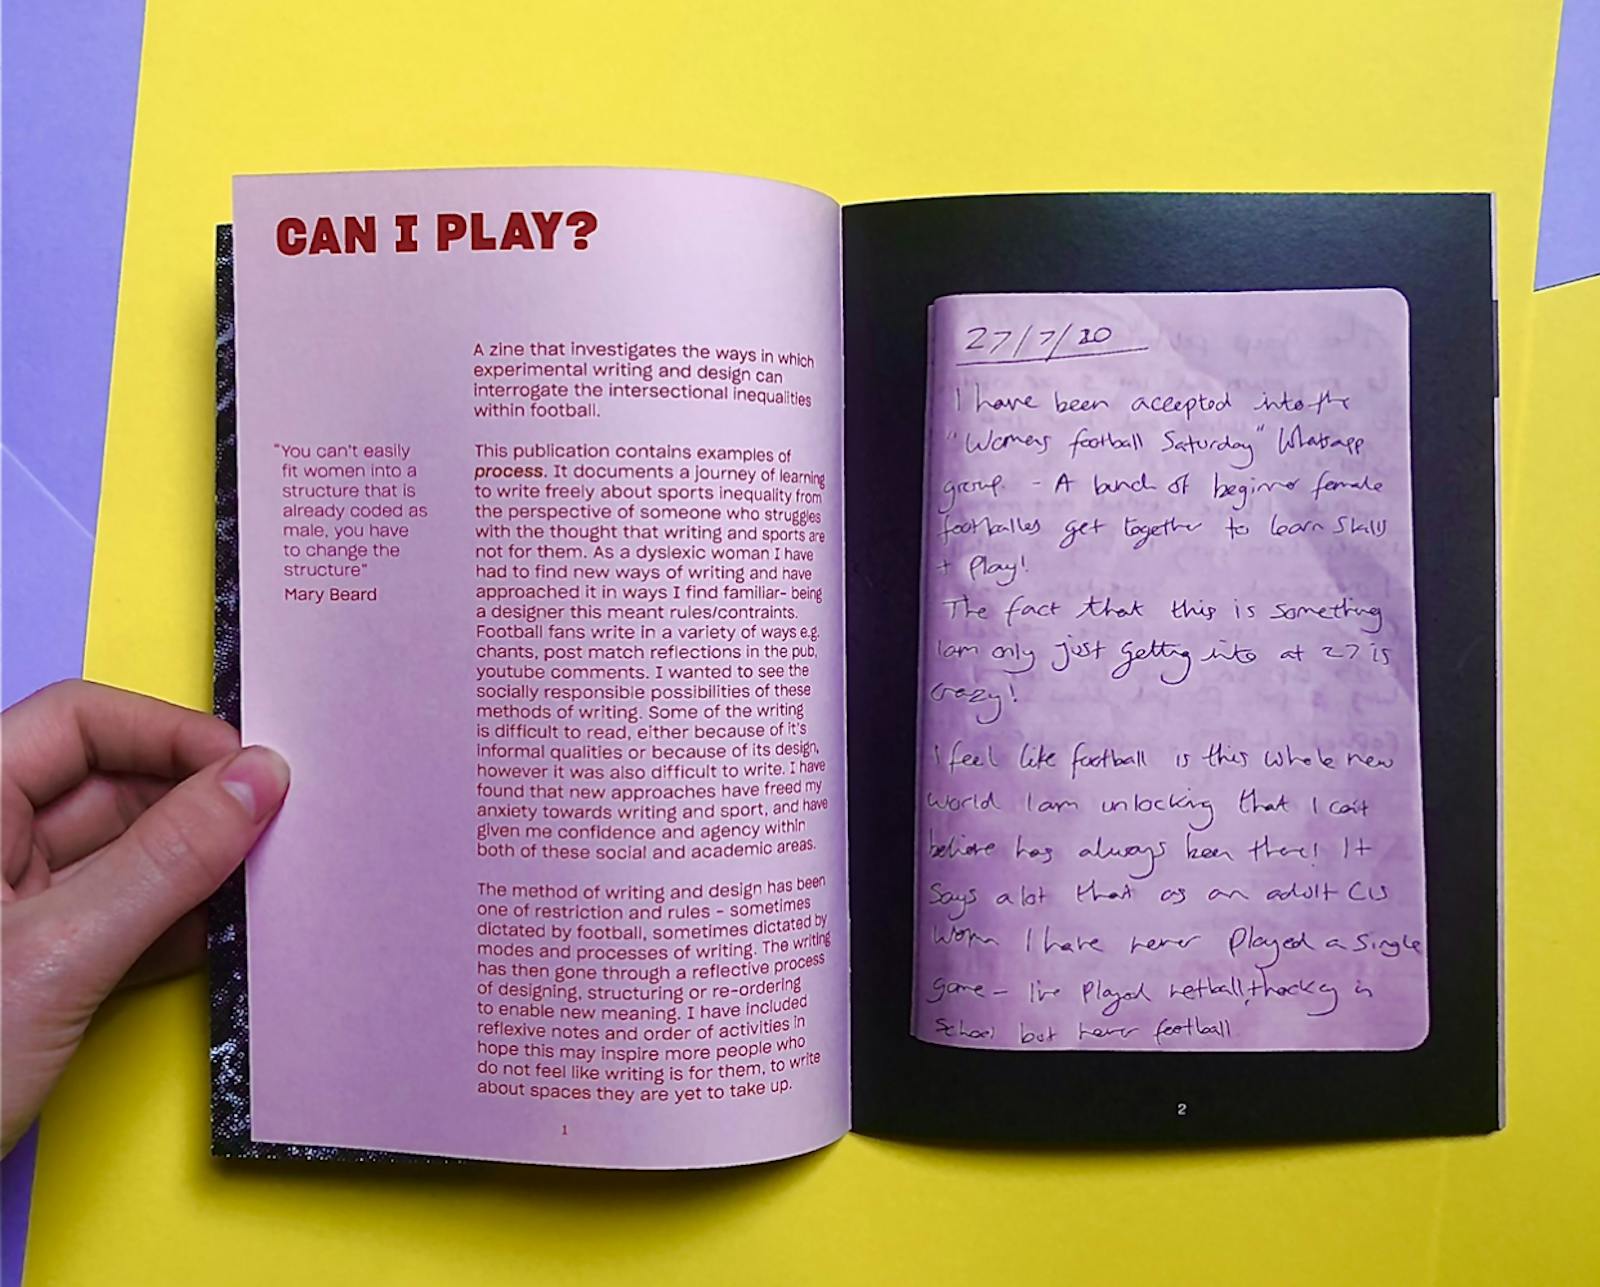 CAN I PLAY?
A zine that investigates the ways in which
experimental writing and design can
interrogate the intersectional inequalities
within football.
"You can't easily
fit women into a
structure that is
already coded as
male, you have
to change the
structure"
Mary Beard
This publication contains examples of
process. It documents a journey of learning
to write freely about sports inequality from
the perspective of someone who struggles
with the thought that writing and sports are
not for them. As a dyslexic woman I have
had to find new ways of writing and have
approached it in ways I find familiar- being
a designer this meant rules/contraints.
Football fans write in a variety of ways e.g.
chants, post match reflections in the pub,
youtube comments. I wanted to see the
socially responsible possibilities of these
methods of writing. Some of the writing
is difficult to read, either because of it's
informal qualities or because of its design,
however it was also difficult to write. I have
found that new approaches have freed my
anxiety towards writing and sport, and have
given me confidence and agency within
both of these social and academic areas.
The method of writing and design has been
one of restriction and rules - sometimes
dictated by football, sometimes dictated by
modes and processes of writing. The writing
has then gone through a reflective process
of designing, structuring or re-ordering
to enable new meaning. I have included
reflexive notes and order of activities in
hope this may inspire more people who
do not feel like writing is for them, to write
about spaces they are yet to take up.
1
27/7/20
I have been accepted into the
"Womens football Saturday" Whatsapp
group - A bunch of beginner female
footballers get together to learn skills
+ Play!
The fact that this is something
I am only just getting into at 27 is
crazy!
I feel like football is this whole new
world I am unlocking that I can't
believe has always been there! It
says a lot that as an adult cis
woman I have never played a single
game - I've played netball, + hockey in
school but never football
2